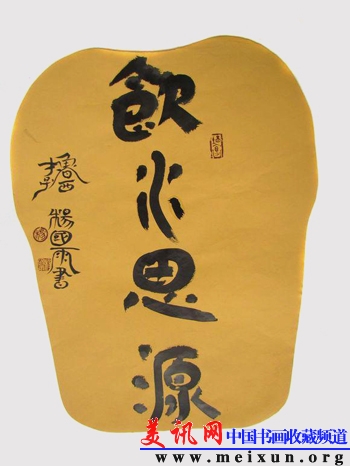 飲水思源
魯西
楊國雨書
美讯网 中国书画收藏频道
www.meixun.org